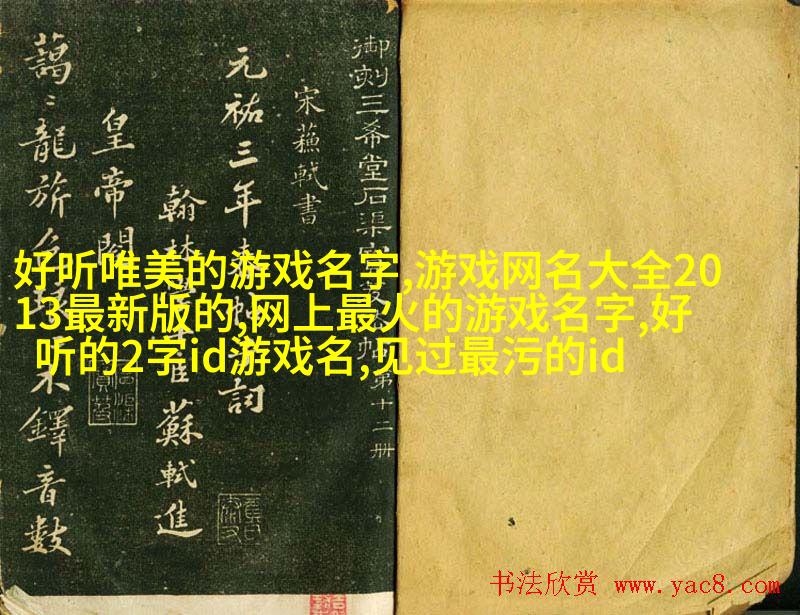 御刻三希堂石渠寶笈法帖第十二册
宋蘇軾書
元祐三年春帖子詞
翰林學士臣蘇軾進
皇帝閣
藹〻龍旂色琅〻木鐸音數
好听唯美的游戏名字,游戏网名大全20
13最新版的,网上最火的游戏名字,好
听的2字id游戏名,见过最污的id
书法欣赏 www.yac8.com